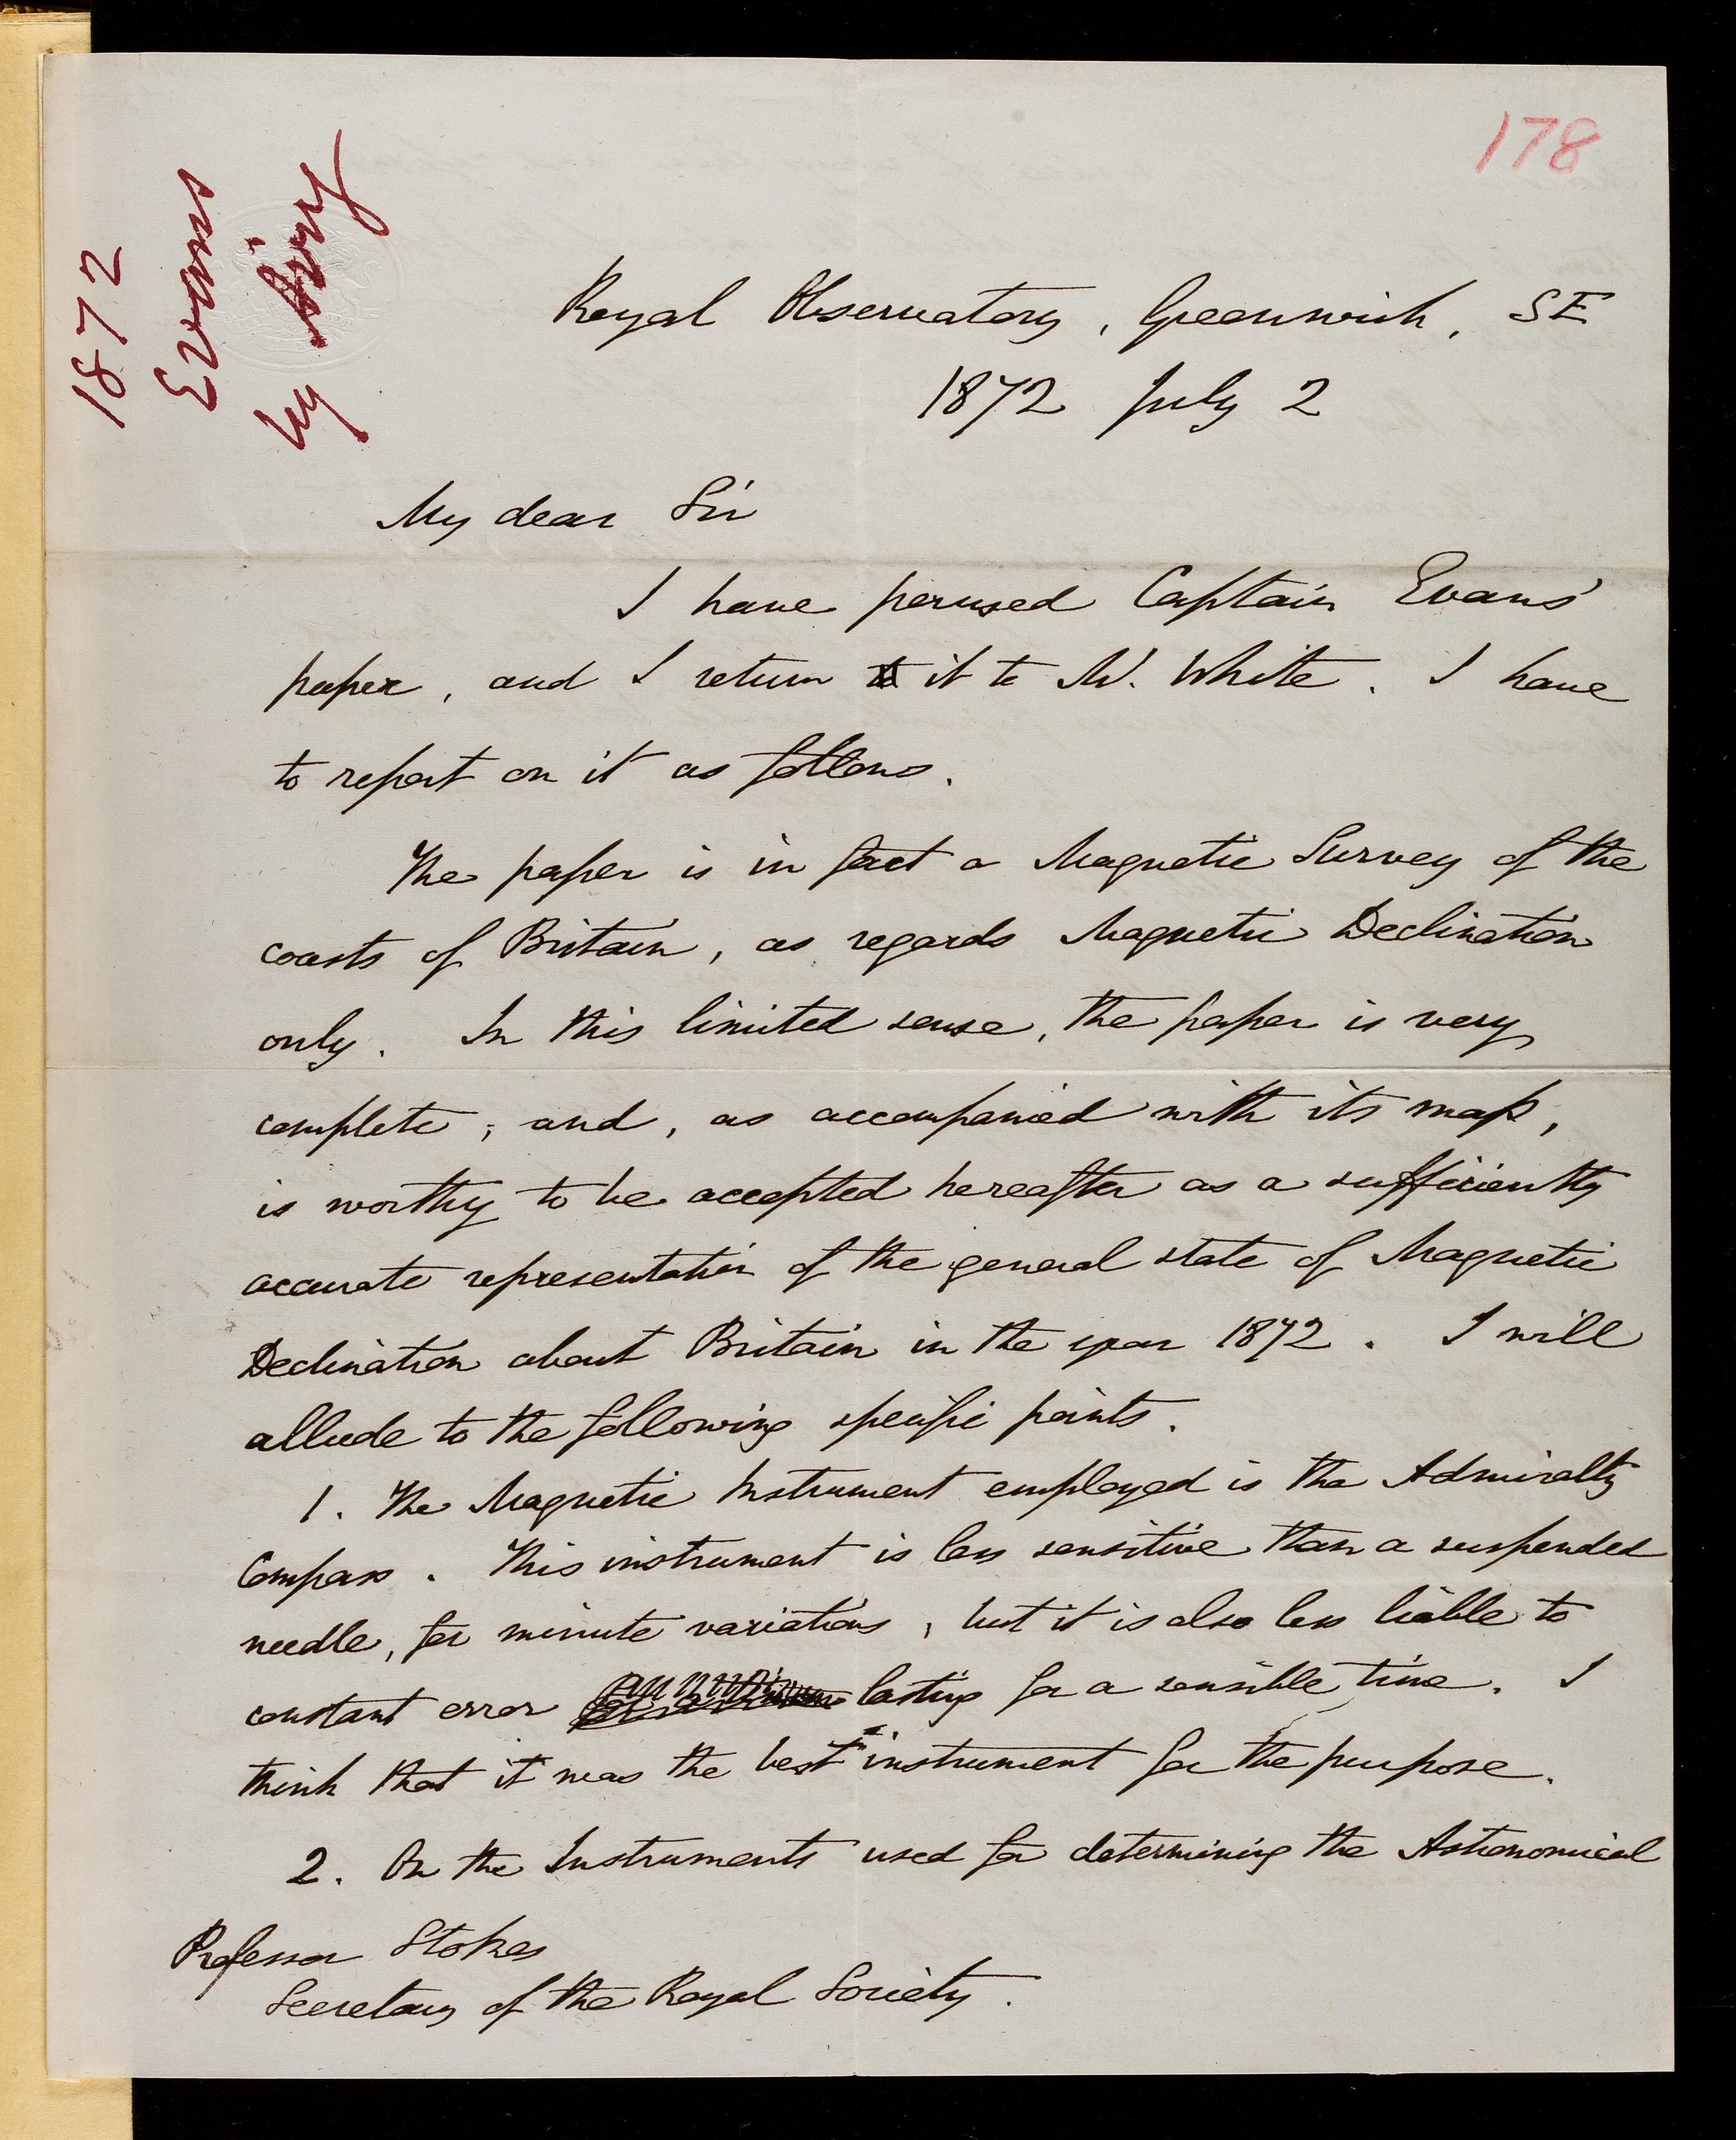 178
1872
Evans
by Airy
Royal Observatory, Greenwich, SE
1872 July 2
My dear Sir
I have perused Captain Evans'
paper, and I return it to W. White. I have
to report on it as follows.
The paper is in fact a Magnetic Survey of the
coasts of Britain, as regards Magnetic Declination
only. In this limited sense, the paper is very
complete; and, as accompanied with its map,
is worthy to be accepted hereafter as a sufficiently
accurate representation of the general state of Magnetic
Declination about Britain in the year 1872. I will
allude to the following specific points.
1. The Magnetic Instrument employed is the Admiralty
Compass. This instrument is less sensitive than a suspended
needle, for minute variations, but it is also less liable to
constant error lasting for a sensible time. I
think that it was the best instrument for the purpose.
2. On the Instruments used for determining the Astronomical
Professor Stokes
Secretary of the Royal Society.